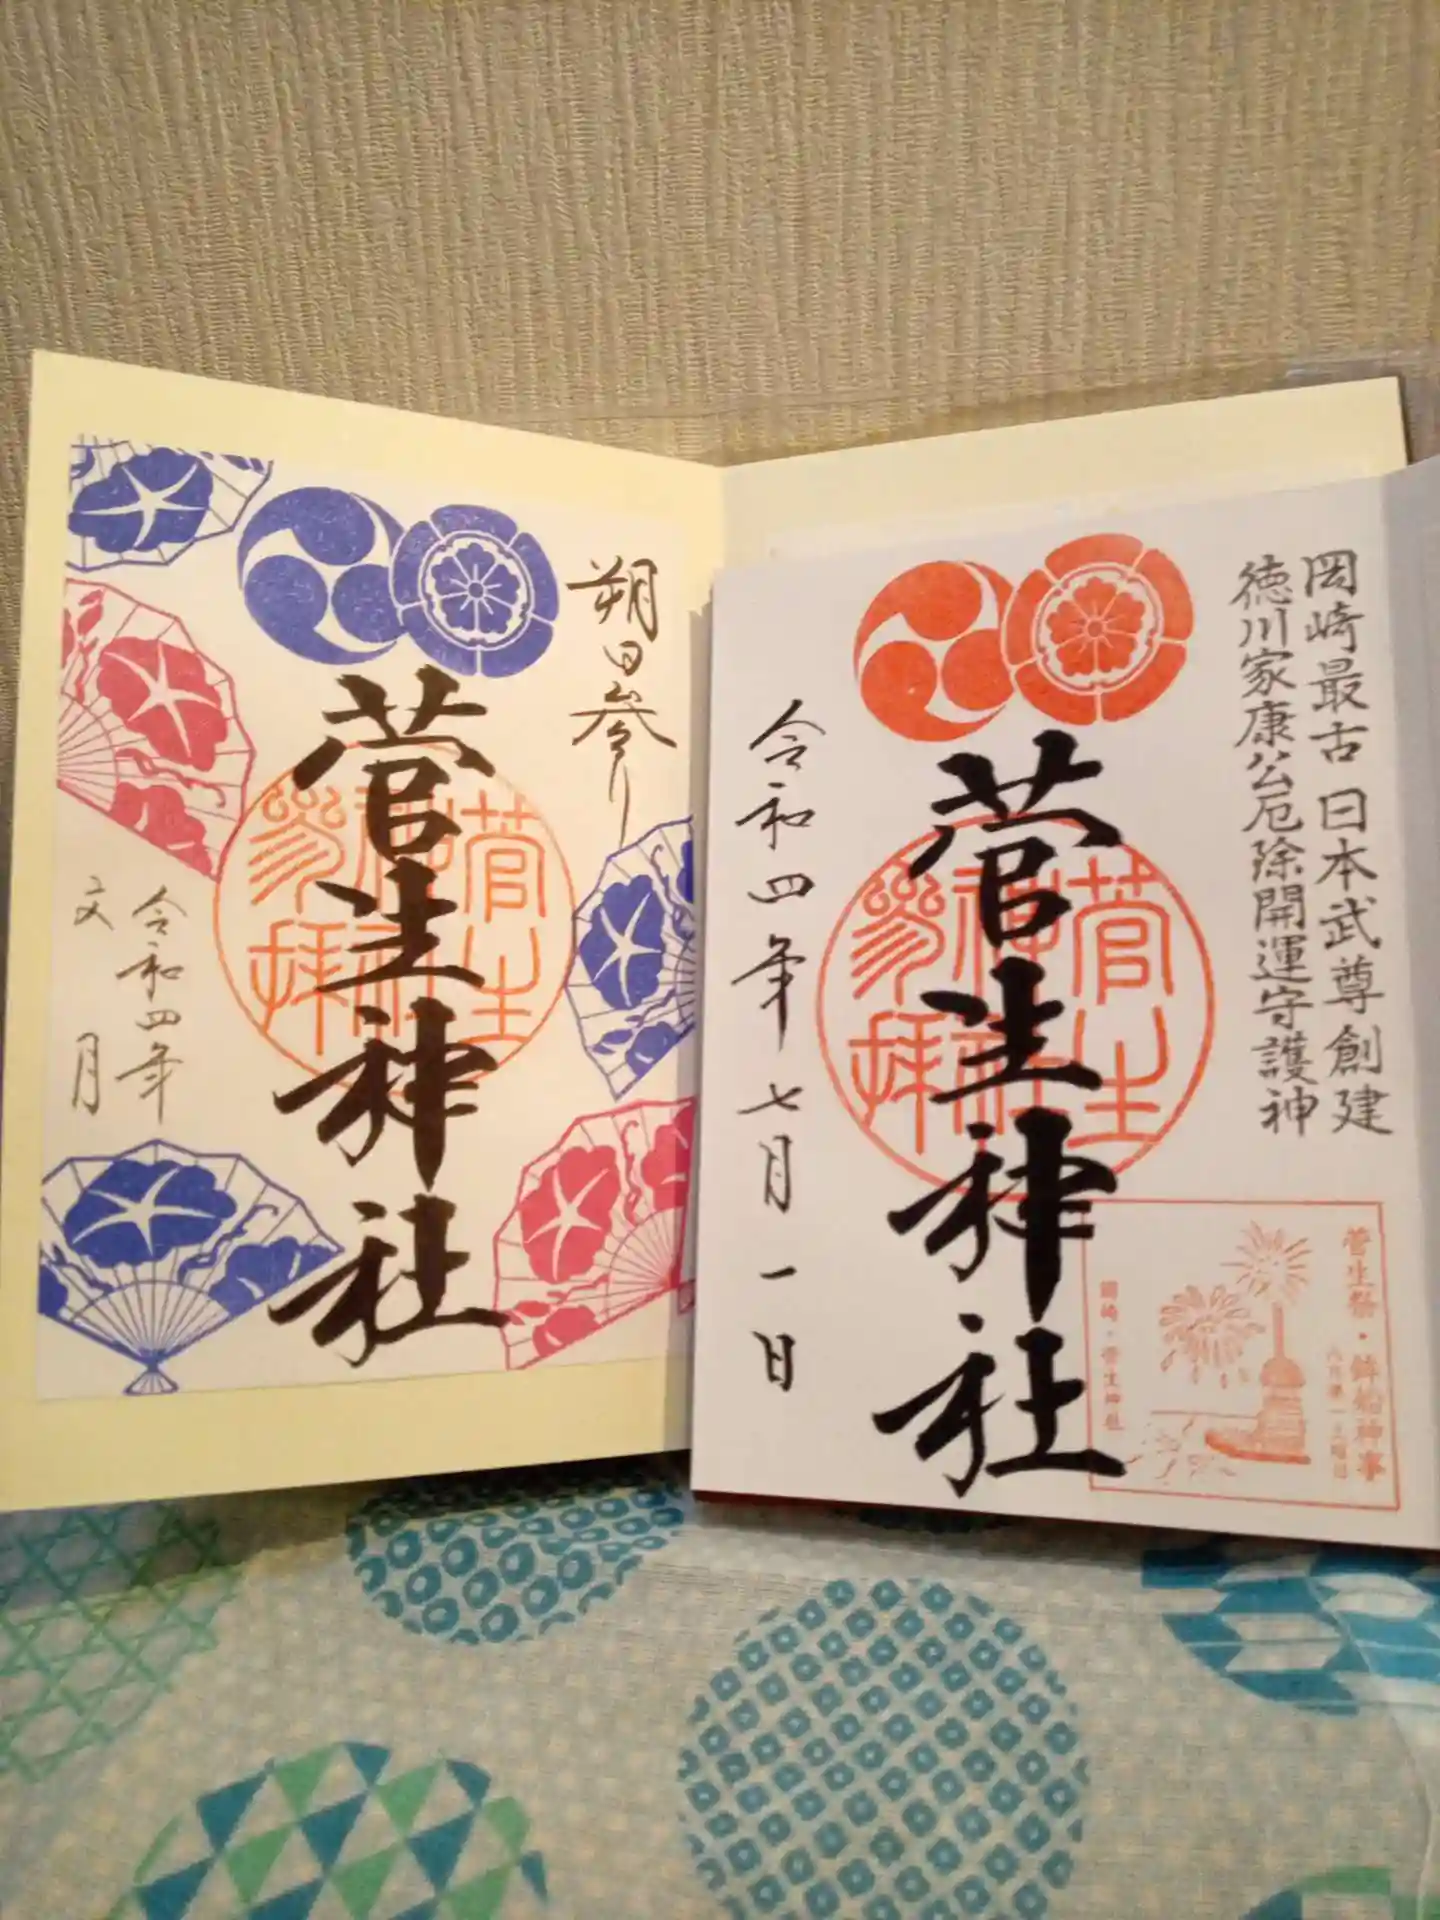 朔日参り
菅生神社
令和四年
文月
菅生神社参拝
岡崎最古 日本武尊創建
徳川家康公厄除開運守護神
菅生神社
令和四年七月一日
菅生神社参拝
菅生祭・鉾船神事
八月第一土曜日
岡崎・菅生神社